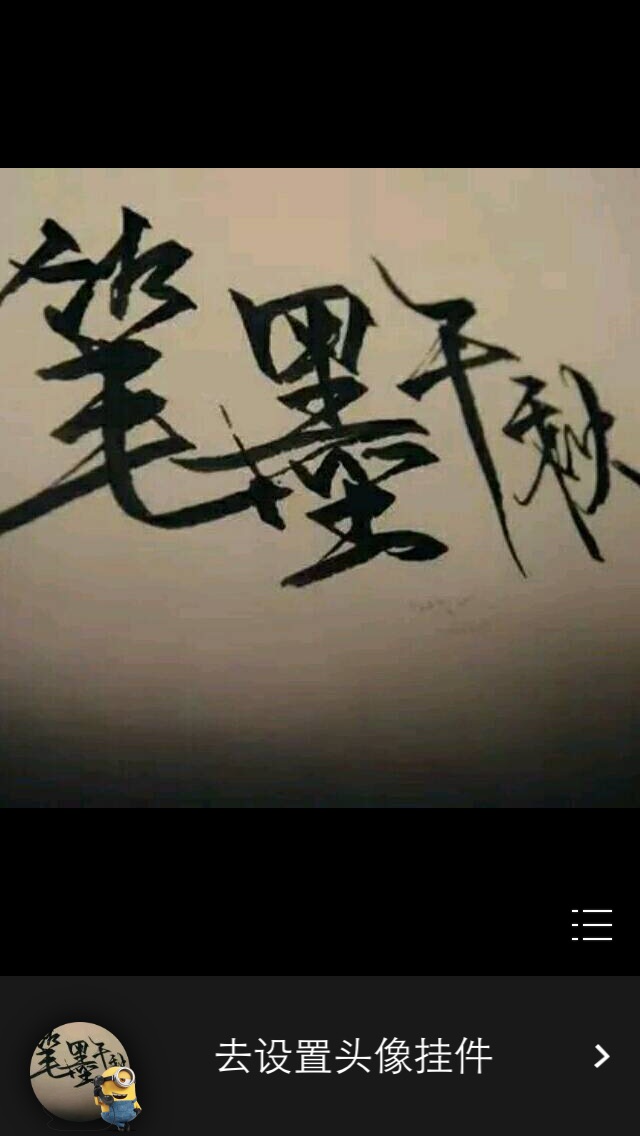 笔墨千秋
去设置头像挂件